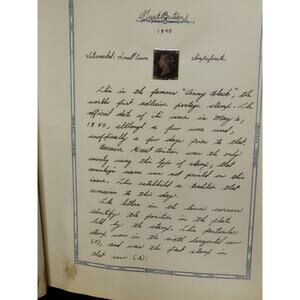 Great Britain
1840
Watermarked: Small Crown Imperforate
This is the famous "Penny Black", the
world's first adhesive postage stamp. The
official date of its issue is May 6,
1840, although a few were used,
unofficially a few days prior to that.
Because Great Britain was the only
country using this type of stamp, that
country's name was not printed on this
issue. This established a tradition that
remains to this day.
The letters in the lower corners
identify the position in the plate
held by the stamp. This particular
stamp was in the horizontal row
and was the first stamp in
that row (A).